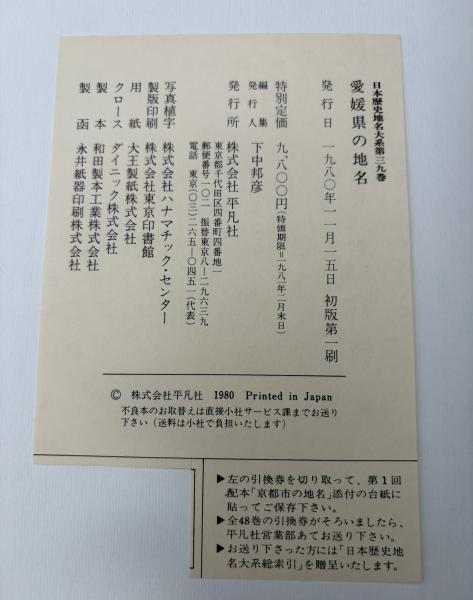 日本歴史地名大系第三九巻
愛媛県の地名
発行日 一九八〇年一一月一五日 初版第一刷
特別定価 九、八〇〇円(特価期限=一九八一年二月末日)
編集
発行人 下中邦彦
発行所 株式会社 平凡社
東京都千代田区四番町四番地一
郵便番号一〇二 振替東京八―二九六三九
電話 東京(〇三)二六五―〇四五一(代表)
写真植字 株式会社ハナマチック・センター
製版印刷 株式会社東京印書館
用紙 大王製紙株式会社
クロース ダイニック株式会社
製本 和田製本工業株式会社
製函 永井紙器印刷株式会社
© 株式会社平凡社 1980 Printed in Japan
不良本のお取替えは直接小社サービス課までお送り
下さい(送料は小社で負担いたします)
▶左の引換券を切り取って、第1回
配本「京都市の地名」添付の台紙に
貼ってご保存下さい。
▶全48巻の引換券がそろいましたら、
平凡社営業部あてお送り下さい。
▶お送り下さった方には「日本歴史地
名大系総索引」を贈呈いたします。